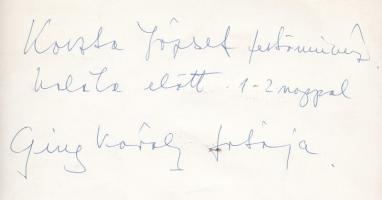 Koszta József festőművész
halála előtt. 1-2 nappal
Ging Károly fotója.